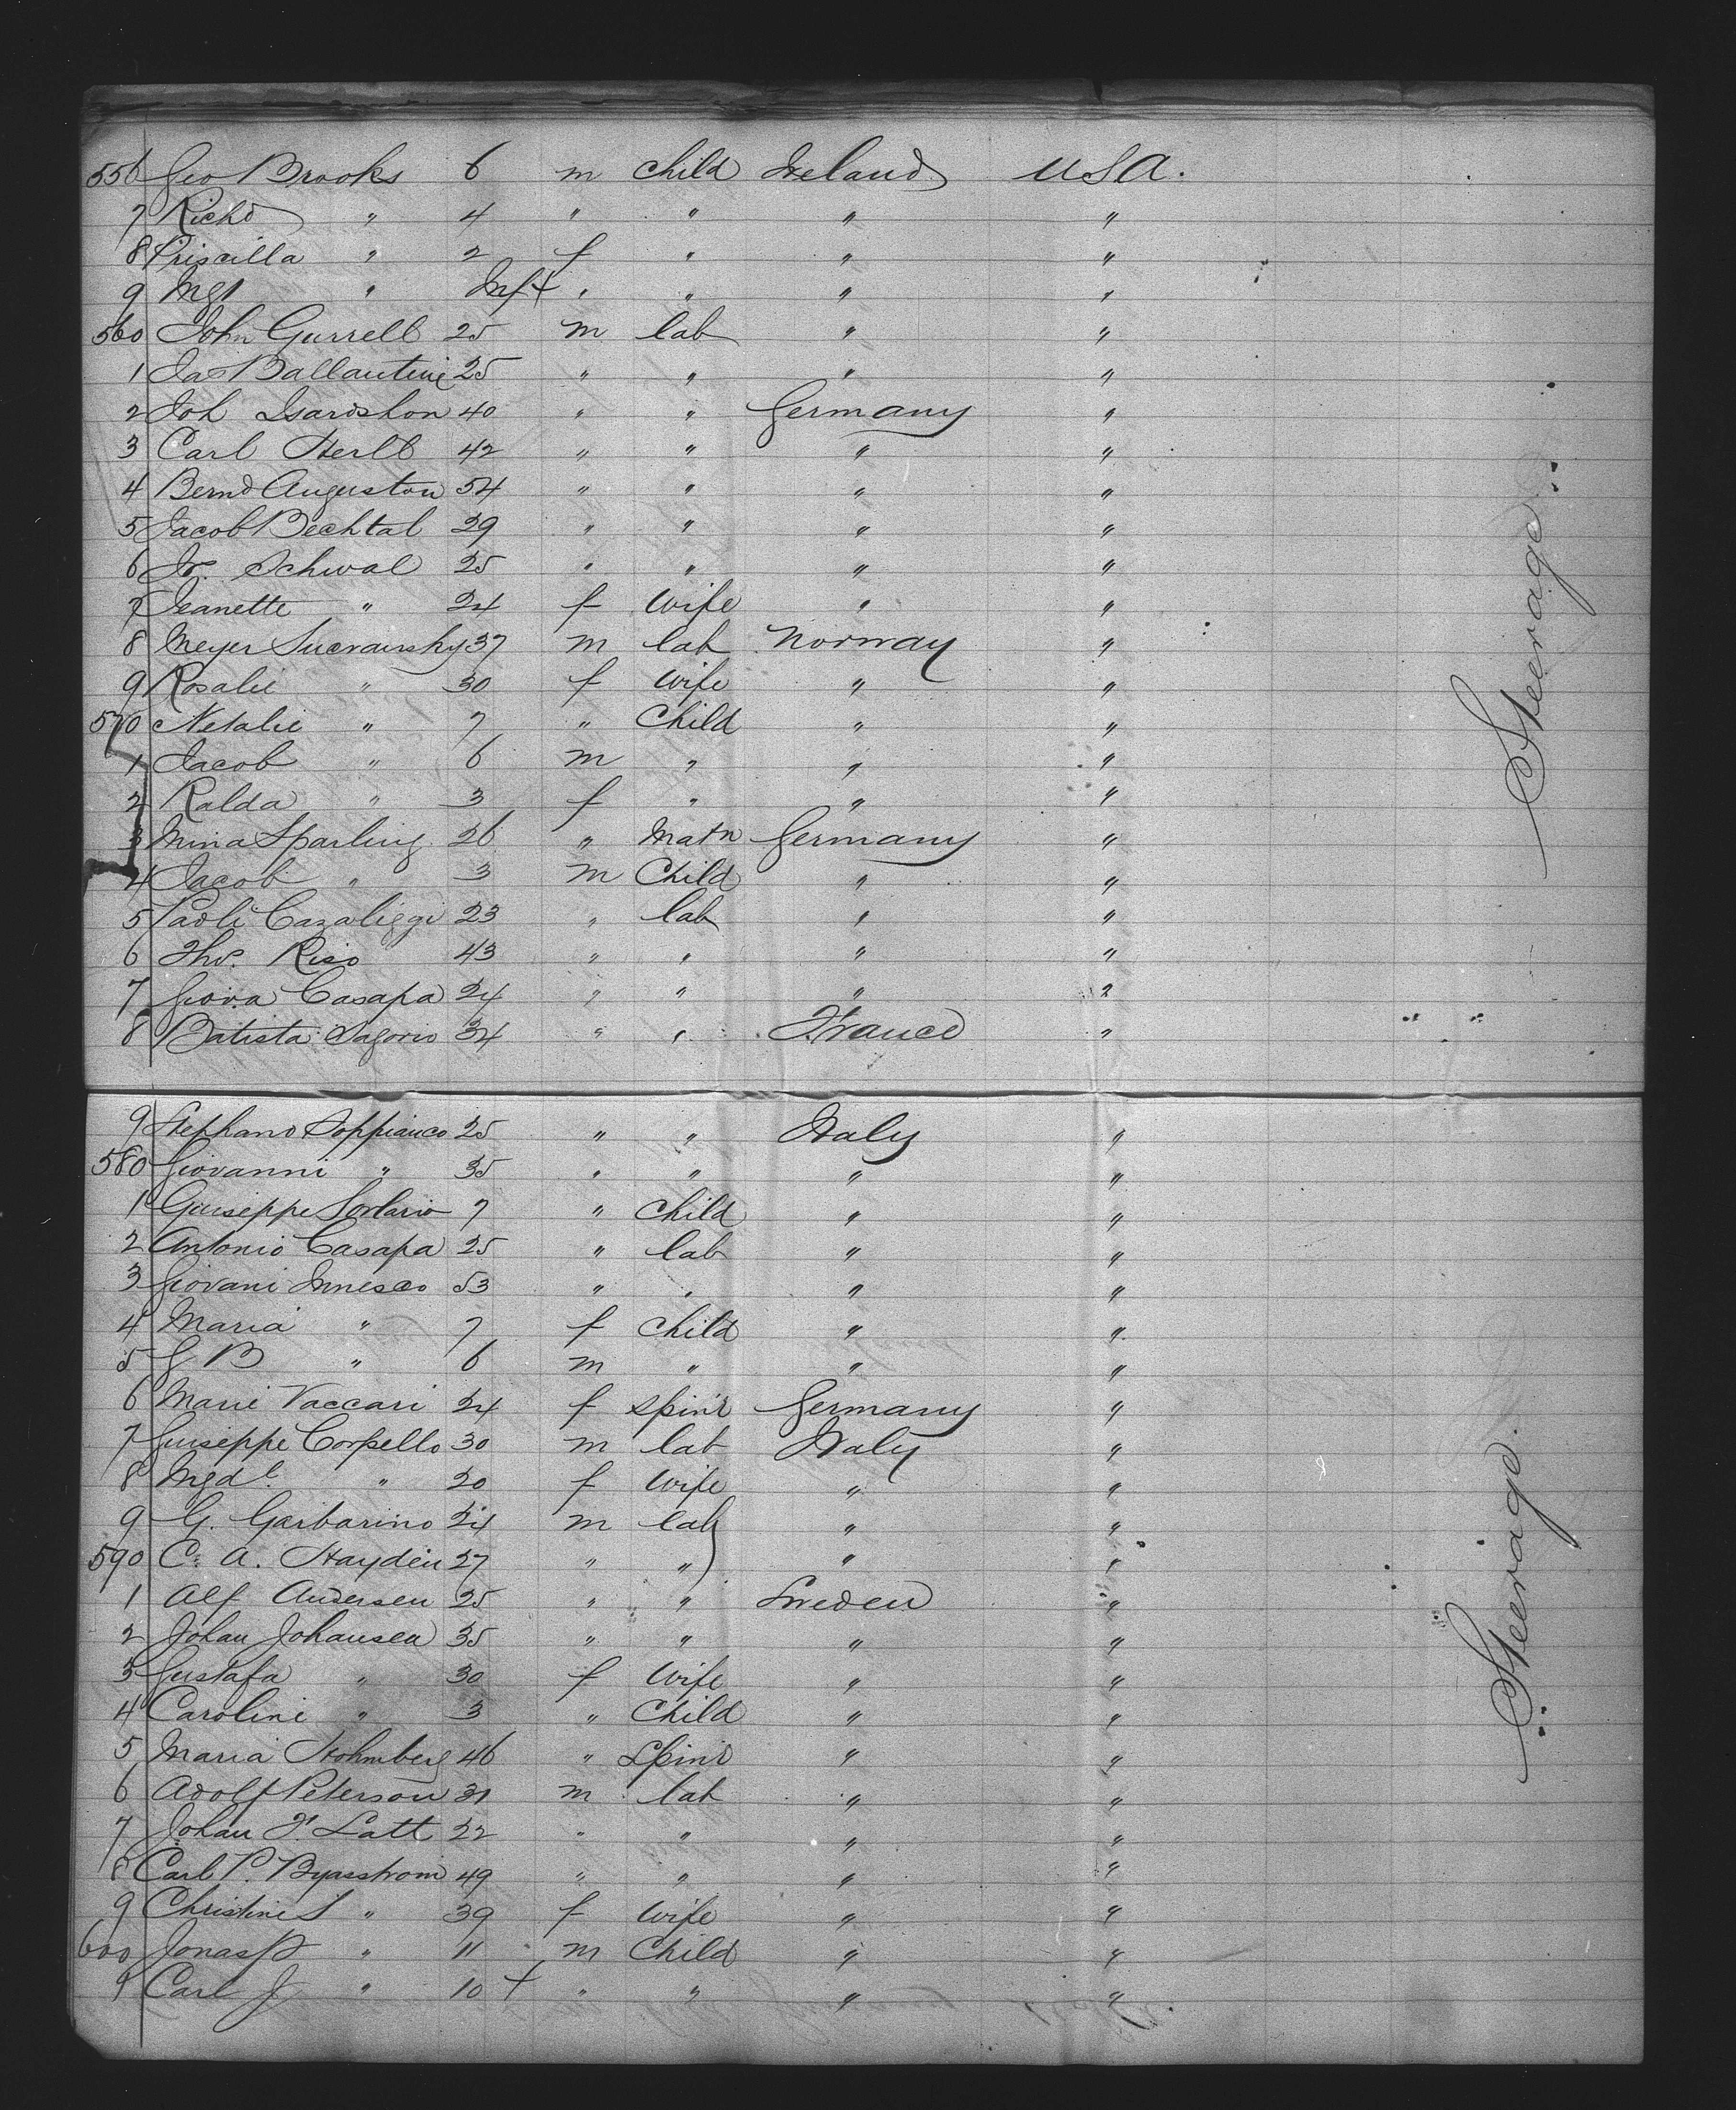 556 Geo Brooks 6 m child Ireland USA.
7 Richd " 4 " " " "
8 Priscilla " 2 f " " "
9 Mgt " Inft " " " "
560 John Gurrell 25 m lab " "
1 Jas Ballantine 25 " " " "
2 Joh 40 " " Germany "
3 Carl Herlb 42 " " " "
4 Bernd Auguston 54 " " " "
5 Jacob Bechtal 29 " " " "
6 Schwal 25 " " " "
7 Jeanette " 24 f Wife " "
8 Meyer 37 m lab Norway "
9 Rosalie " 30 f Wife " "
570 Netalie " 7 " Child " "
1 Jacob " 6 m " " "
2 Ralda " 3 f " " "
3 Mina Sparling 26 " Matn Germany "
4 Jacob " 3 m Child " "
5 Paoli Cazaliggi 23 " lab " "
6 Riso 43 " " " "
7 Giova Casapa 24 " " " "
8 Batista Sagorio 34 " " France "
9 Stephano Soppianco 25 " " Italy "
580 Giovanni " 35 " " " "
1 Guiseppe Sorlario 7 " Child " "
2 Antonio Casapa 25 " lab " "
3 Giovani Innesco 53 " " " "
4 Maria " 7 f Child " "
5 G B " 6 m " " "
6 Marie Vaccari 24 f Spinr Germany "
7 Guiseppe Corpello 30 m lab Italy "
8 Mgdl. " 20 f Wife " "
9 G. Garbarino 24 m lab " "
590 C. A. Hayden 27 " " " "
1 Alf Andersen 25 " " Sweden "
2 Johan Johansen 35 " " " "
3 Gustafa " 30 f Wife " "
4 Caroline " 3 " Child " "
5 Maria Stohmberg 46 " Spinr " "
6 Adolf Peterson 31 m lab " "
7 Johan F. Latt 22 " " " "
8 Carl P. Byasstrom 49 " " " "
9 Christine S " 39 f Wife " "
600 Jonas P " 11 m Child " "
1 Carl J " 10 + " " " "
Steerage
Steerage.